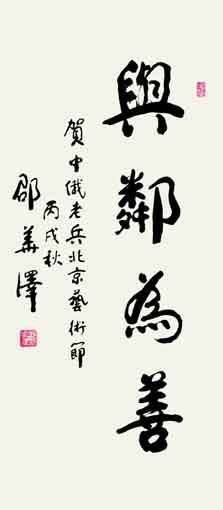 與鄰為善
賀中俄老兵北京藝術節
丙戌秋
邵華澤